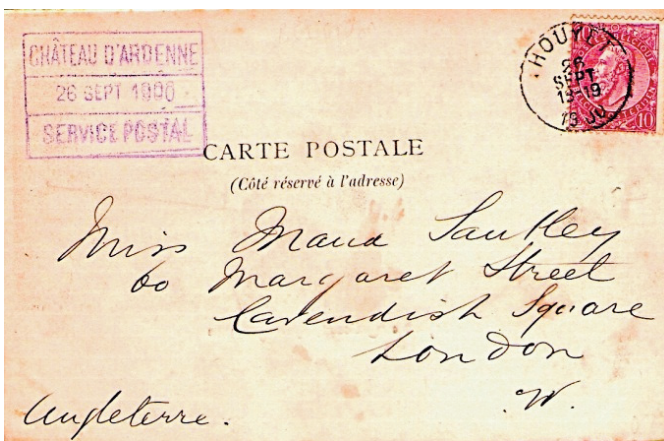 CHÂTEAU D'ARDENNE
26 SEPT 1900
SERVICE POSTAL
HOUYET
26
SEPT
18-19
10
CARTE POSTALE
(Côté réservé à l'adresse)
Miss Maud Santley
60 Margaret Street
Cavendish Square
London
W.
Angleterre.